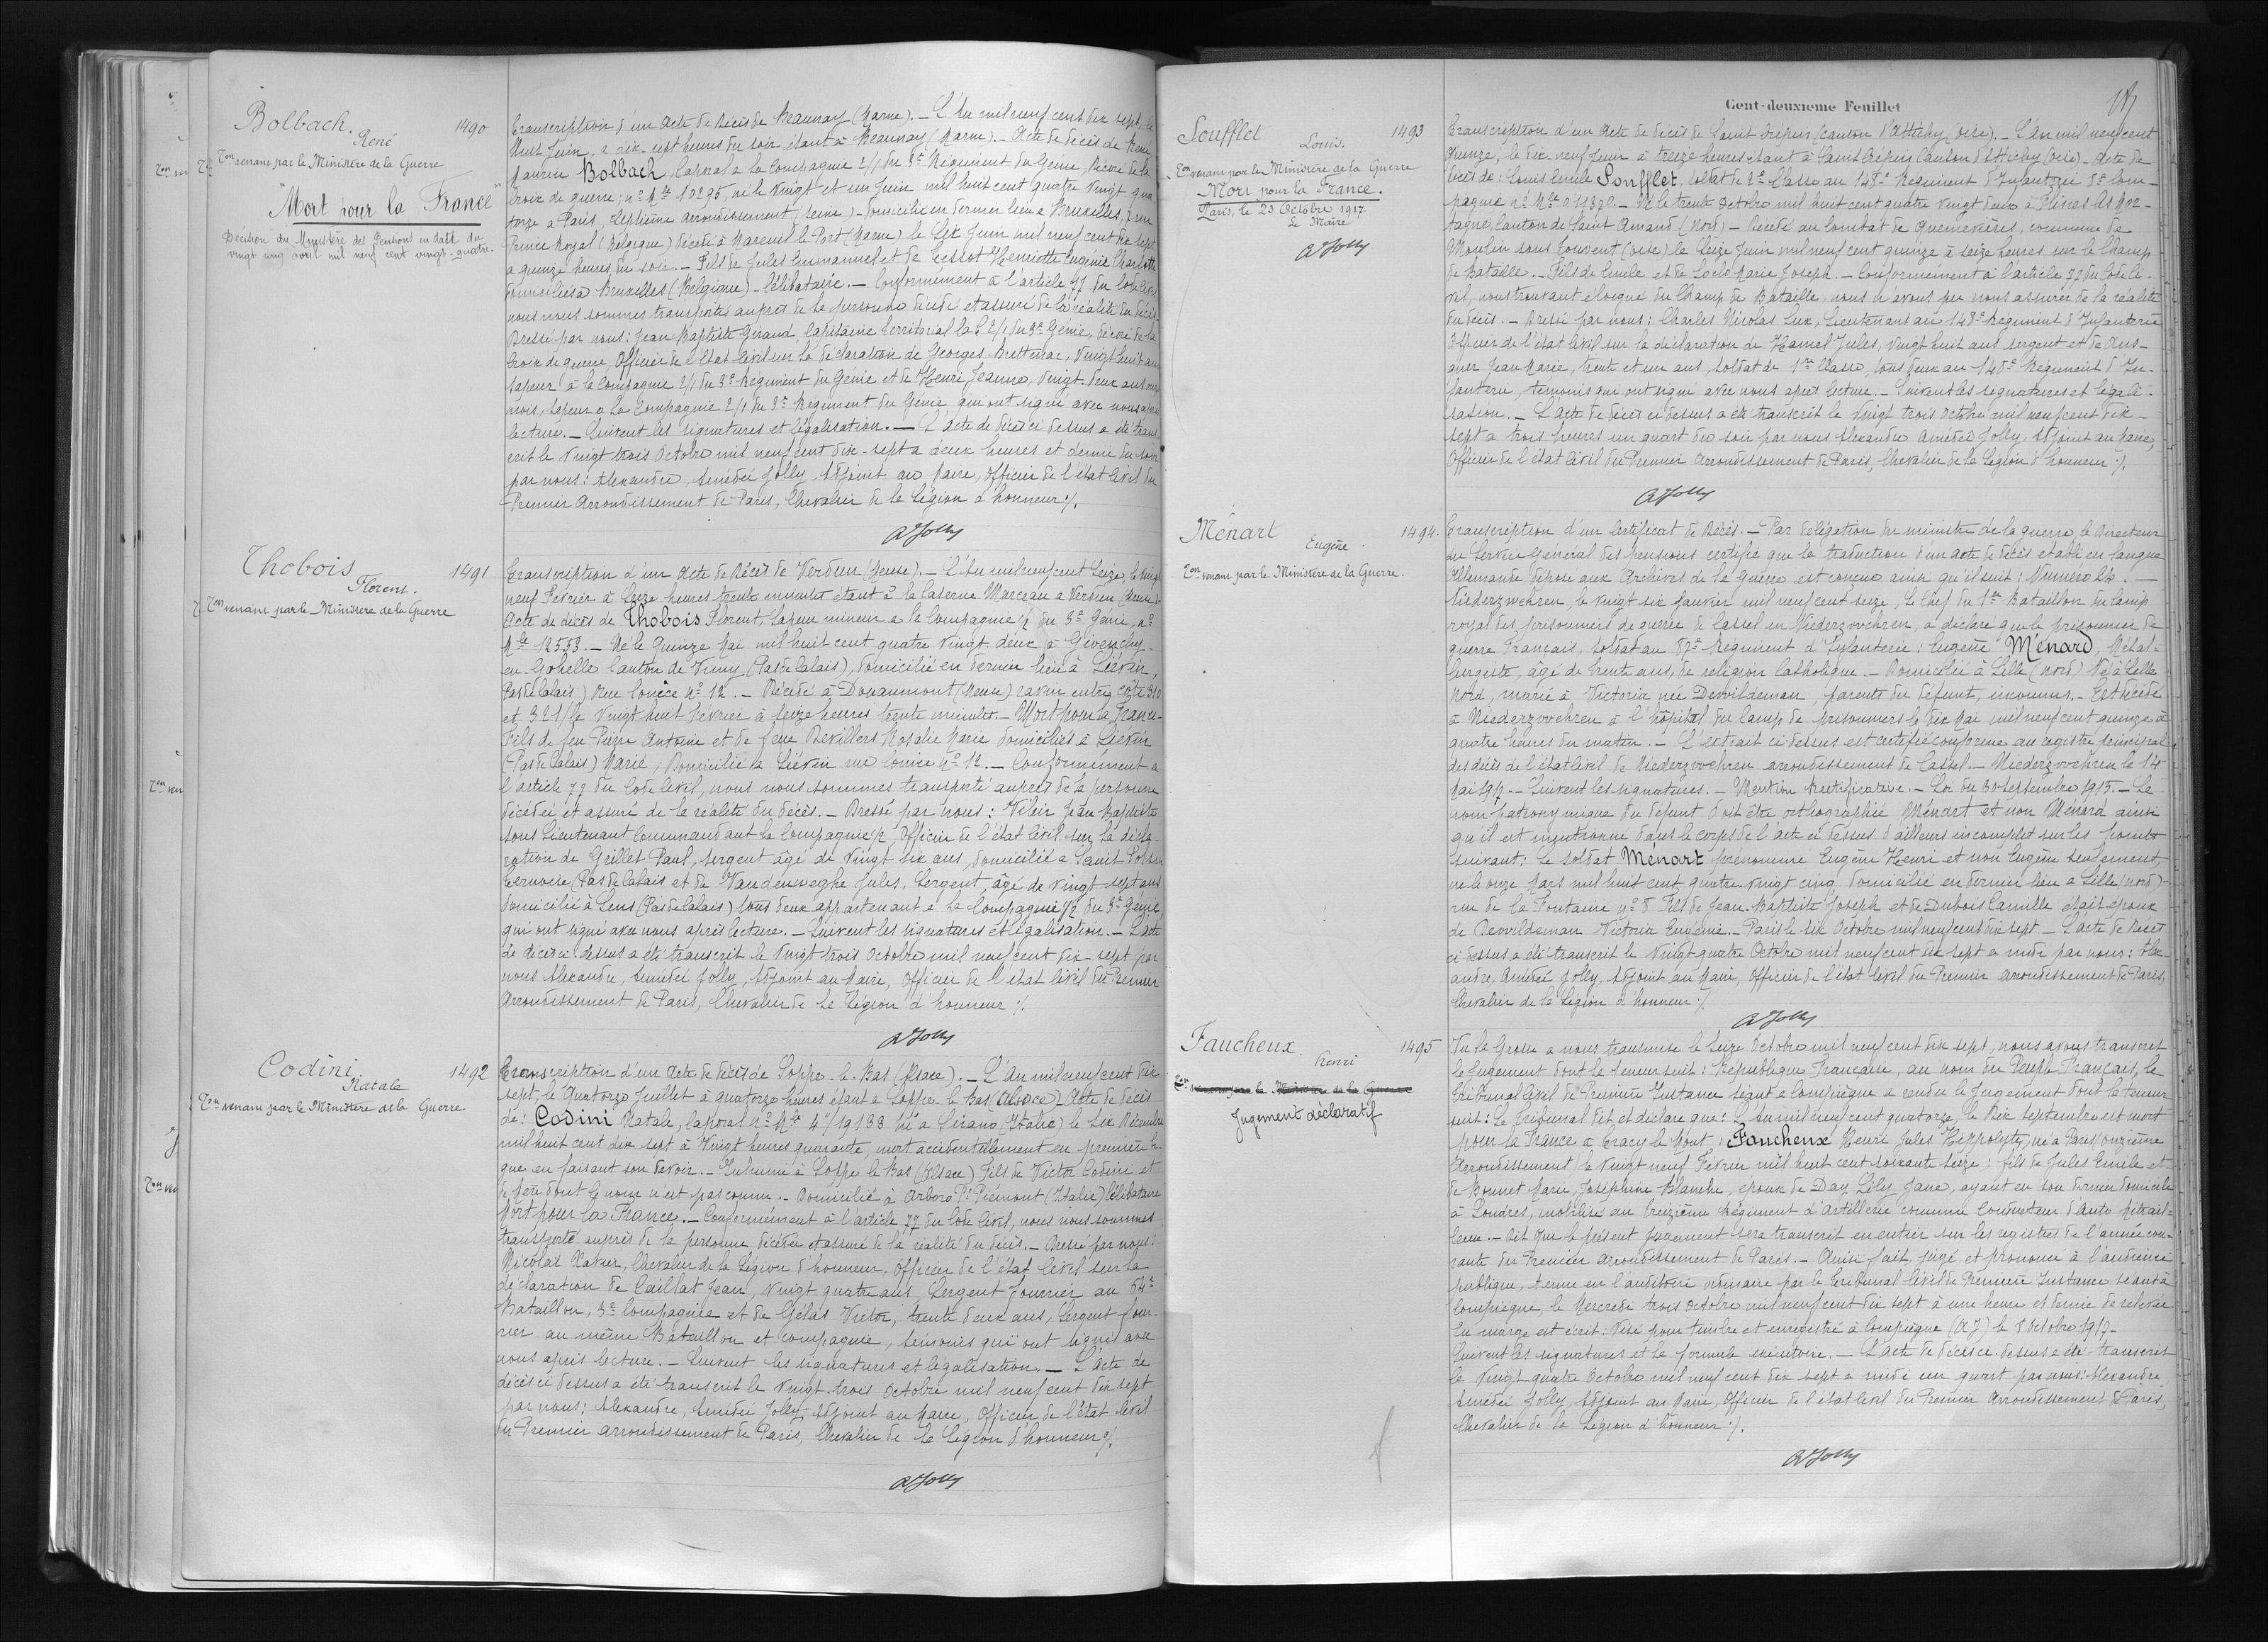 Bolbach. 1490
René
Ton venant par le Ministère de la Guerre
"Mort pour la France"
Décision du Ministère des Pensions en date du
vingt cinq mil neuf cent vingt-quatre.
Transcription d'un Acte de Décès de Beaunay (Marne). - L'An mil neuf cent dix sept, le
huit Juin, à dix-sept heures du soir étant à Beaunay (Marne). - Acte de décès de René
Maurice Bolbach, Caporal à la Compagnie 2/1 du 3e Régiment du Génie, décoré de la
Croix de guerre; no Mle né le Vingt et un Juin mil huit cent quatre vingt qua
torze à Paris, septième arrondissement (Seine) - domicilié en dernier lieu à Bruxelles, rue
Prince Royal (Belgique) décédé à Mareuil le Port (Marne) le Six Juin mil neuf cent dix sept
à quinze heures du soir. - Fils de Jules Emmanuel et de Henriette Eugénie Charlotte
domiciliés à Bruxelles (Belgique) - Célibataire. - Conformément à l'article 77 du Code Civil
nous nous sommes transporté auprès de la personne décédée et assuré de la réalité du décès
Dressé par nous: Jean Baptiste Giraud, Capitaine Territorial la Cie 2/1 du 3e Génie, décoré de la
Croix de guerre, Officier de l'état Civil sur la déclaration de Georges Vingt huit ans
sapeur à la Compagnie 2/1 du 3e Régiment du Génie et de Henri Jeanne, Vingt-deux ans
mois, sapeur à la Compagnie 2/1 du 3e Régiment du Génie qui ont signé avec nous après
lecture. - Suivent les signatures et légalisation. - L'acte de décès ci dessus a été trans
crit le Vingt trois Octobre mil neuf cent dix-sept à deux heures et demie du soir
par nous: Alexandre, Amédée Jolly, Adjoint au Maire, Officier de l'état Civil du
Premier Arrondissement de Paris, Chevalier de la Légion d'honneur ./.
AJolly
Thobois 1491
Florent.
Ton venant par le Ministère de la Guerre
Transcription d'un Acte de Décès de Verdun (Meuse). - L'An mil neuf cent Seize, le Vingt
neuf Février à Seize heures trente minutes étant à la Caserne Marceau à Verdun (Meuse).
Acte de décès de Thobois Florent, Sapeur mineur à la Compagnie 1/2 du 3e Génie, no
Mle 12553. - Né le Quinze Mai mil huit cent quatre vingt deux à Givenchy
en Gohelle Canton de Vimy (Pas de Calais), domicilié en dernier lieu à Liévin,
Pas de Calais) Rue no 12. - Décédé à Douaumont (Meuse) ravin entre côte 310
et 321 le Vingt huit Février à Seize heures trente minutes. - Mort pour la France -
Fils de feu Pierre Antoine et de feue Devillers Rosalie Marie domiciliés à Liévin
(Pas de Calais) Marié, Domicilié à Liévin rue no 12. - Conformément à
l'article 77 du Code Civil, nous nous sommes transporté auprès de la personne
décédée et assuré de la réalité du décès. - Dressé par nous: Jean Baptiste
sous Lieutenant Commandant la Compagnie 1/2, Officier de l'état Civil sur la décla
ration de Grillet Paul, sergent âgé de Vingt six ans, domicilié à Saint Pol sur
Ternoise (Pas de Calais et de Vandenweghe Jules, Sergent, âgé de vingt sept ans
domicilié à Lens (Pas de Calais) tous deux appartenant à la Compagnie 1/2 du 3e Génie,
qui ont signé avec nous après lecture. - Suivent les signatures et légalisation. - L'acte
de décès ci dessus a été transcrit le Vingt trois Octobre mil neuf cent dix-sept par
nous Alexandre, Amédée Jolly, Adjoint au Maire, Officier de l'état Civil du Premier
Arrondissement de Paris, Chevalier de la Légion d'honneur ./.
AJolly
Codini 1492
Natale
Ton venant par le Ministère de la Guerre
Transcription d'un Acte de décès de Soppe-le-Bas (Alsace). - L'An mil neuf cent dix
sept, le Quatorze Juillet à quatorze heures étant à Soppe le Bas (Alsace) - Acte de décès
de: Codini Natale, Caporal no Mle 4/19133 né à (Italie) le Six Décembre
mil huit cent dix sept à Vingt heures quarante, mort accidentellement en première li-
gne en faisant son devoir. - Inhumé à Soppe le Bas (Alsace) Fils de Victor Codini et
de Mère dont le nom n'est pas connu. - Domicilié à Arboro Piémont (Italie) Célibataire
Mort pour la France. - Conformément à l'article 77 du Code Civil, nous nous sommes
transporté auprès de la personne décédée et assuré de la réalité du décès. - Dressé par nous:
Nicolas Xavier, Chevalier de la Légion d'honneur, Officier de l'état Civil sur la
déclaration de Caillat Jean, Vingt quatre ans, Sergent Fourrier au 64e
Bataillon, 3e Compagnie et de Gélas Victor, trente deux ans, Sergent four-
rier au même Bataillon et compagnie, témoins qui ont signé avec
nous après lecture. - Suivent les signatures et légalisation. - L'acte de
décès ci dessus a été transcrit le Vingt-trois Octobre mil neuf cent dix sept
par nous: Alexandre, Amédée Jolly Adjoint au Maire, Officier de l'état Civil
du Premier Arrondissement de Paris, Chevalier de la Légion d'honneur ./.
AJolly
Cent-deuxième Feuillet
Soufflet 1493
Louis.
Ton venant par le Ministère de la Guerre
Mort pour la France.
Paris, le 23 Octobre 1917.
Le Maire
AJolly
Transcription d'un Acte de décès de Saint Crépin (Canton d'Attichy (Oise). - L'An mil neuf cent
Quinze, le dix-neuf Juin à treize heures étant à Saint Crépin Canton d'Attichy (Oise) - Acte de
décès de: Louis Emile Soufflet, soldat de 2e Classe au 148e Régiment d'Infanterie 8e Com-
pagnie no Mle - Né le trente Octobre mil huit cent quatre vingt deux à
Canton de Saint Amand (Nord) - Décédé au Combat de Quennevières, commune de
Moulin sous Touvent (Oise) le Seize Juin mil neuf cent quinze à seize heures sur le Champ
de Bataille. - Fils de Emile et de Marie Joseph. - Conformément à l'article 77 du Code Ci-
vil, nous trouvant éloigné du Champ de Bataille, nous n'avons pu nous assurer de la réalité
du décès. - Dressé par nous: Charles Nicolas Lux, Lieutenant au 148e Régiment d'Infanterie
Officier de l'état Civil sur la déclaration de Hamel Jules, vingt huit ans sergent et de
Jean Marie, trente et un ans, Soldat de 1re Classe, tous deux au 148e Régiment d'In-
fanterie, témoins qui ont signé avec nous après lecture. - Suivent les signatures et légali-
sation. - L'acte de décès ci dessus a été transcrit le Vingt trois Octobre mil neuf cent dix-
sept à trois heures un quart du soir par nous Alexandre Amédée Jolly, Adjoint au Maire,
Officier de l'état Civil du Premier Arrondissement de Paris, Chevalier de la Légion d'honneur ./.
AJolly
Ménart 1494.
Eugène.
Ton venant par le Ministère de la Guerre.
Transcription d'un Certificat de Décès. - Par délégation du ministre de la guerre, le Directeur
du Service Général des pensions certifie que la traduction d'un acte de décès établi en langue
Allemande déposé aux Archives de la Guerre est conçue ainsi qu'il suit: Numéro 24. -
Niederzwehren, le vingt six Janvier mil neuf cent seize, Le Chef du 1er Bataillon du Camp
royal des prisonniers de guerre de Cassel en Niederzwehren, a déclaré que le prisonnier de
guerre Français, soldat au Régiment d'Infanterie: Eugène Ménard, Métal-
lurgiste, âgé de trente ans, de religion Catholique. - Domicilié à Lille (Nord) Né à Lille
Nord, marié à Victoria née Dewildeman, parents du défunt, inconnus. - Est décédé
à Niederzwehren à l'hôpital du Camp de prisonniers le dix Mai mil neuf cent quinze à
quatre heures du matin. - L'extrait ci dessus est certifié conforme au registre principal
des décès de l'état Civil de Niederzwehren arrondissement de Cassel. - Niederzwehren le 14
Mai 1917. - Suivent les signatures. - Mention Rectificative. - Loi du 30 Septembre 1915. - Le
nom patronymique du défunt doit être orthographié Ménart et non Ménard ainsi
qu'il est mentionné dans le corps de l'acte ci dessus d'ailleurs incomplet sur les points
suivant: Le soldat Ménart prénommé Eugène Henri et non Eugène seulement,
né le onze Mars mil huit cent quatre vingt cinq domicilié en dernier lieu à Lille (Nord)
rue de la Fontaine no 8 Fils de Jean-Baptiste Joseph et de Dubois Camille était époux
de Dewildeman Victoria Eugénie. - Paris le six Octobre mil neuf cent dix sept - L'acte de Décès
ci dessus a été transcrit le Vingt quatre Octobre mil neuf cent dix sept à midi par nous: Alex-
andre, Amédée Jolly, Adjoint au Maire, Officier de l'état Civil du Premier Arrondissement de Paris,
Chevalier de la Légion d'honneur ./.
AJolly
Faucheux. 1495
Henri
Ton venant par le Ministère de la Guerre
Jugement déclaratif
Vu la Grosse à nous transmise le Seize Octobre mil neuf cent dix sept, nous avons transcrit
le Jugement dont la teneur suit: République Française, au nom du Peuple Français, le
Tribunal Civil de Première Instance séant à Compiègne a rendu le Jugement dont la teneur
suit: Le Tribunal dit et déclare que: L'An mil neuf cent quatorze, le Dix septembre est mort
pour la France à Cracy le Mont: Faucheux Henri Jules Hippolyte, né à Paris onzième
Arrondissement le vingt neuf Février mil huit cent soixante seize; fils de Jules Emile et
de Bonnet Marie Joséphine Blanche, époux de Day Lily Jane, ayant eu son dernier domicile
à Londres, mobilisé au treizième Régiment d'Artillerie comme Conducteur d'Auto Mitrail-
leuse. - Dit que le présent Jugement sera transcrit en entier sur les registres de l'année cou-
rante du Premier Arrondissement de Paris. - Ainsi fait, jugé et prononcé à l'audience
publique, tenue en l'auditoire ordinaire par le Tribunal Civil de Première Instance séant à
Compiègne, le Mercredi trois Octobre mil neuf cent dix sept à une heure et demie de relevée
En marge est écrit: Visé pour timbre et enregistré à Compiègne (AJ) le 8 Octobre 1917-
Suivent les signatures et la formule exécutoire. - L'acte de décès ci-dessus a été transcrit
le Vingt quatre Octobre mil neuf cent dix sept à midi un quart par nous: Alexandre
Amédée Jolly, Adjoint au Maire, Officier de l'état Civil du Premier Arrondissement de Paris,
Chevalier de la Légion d'honneur ./.
AJolly